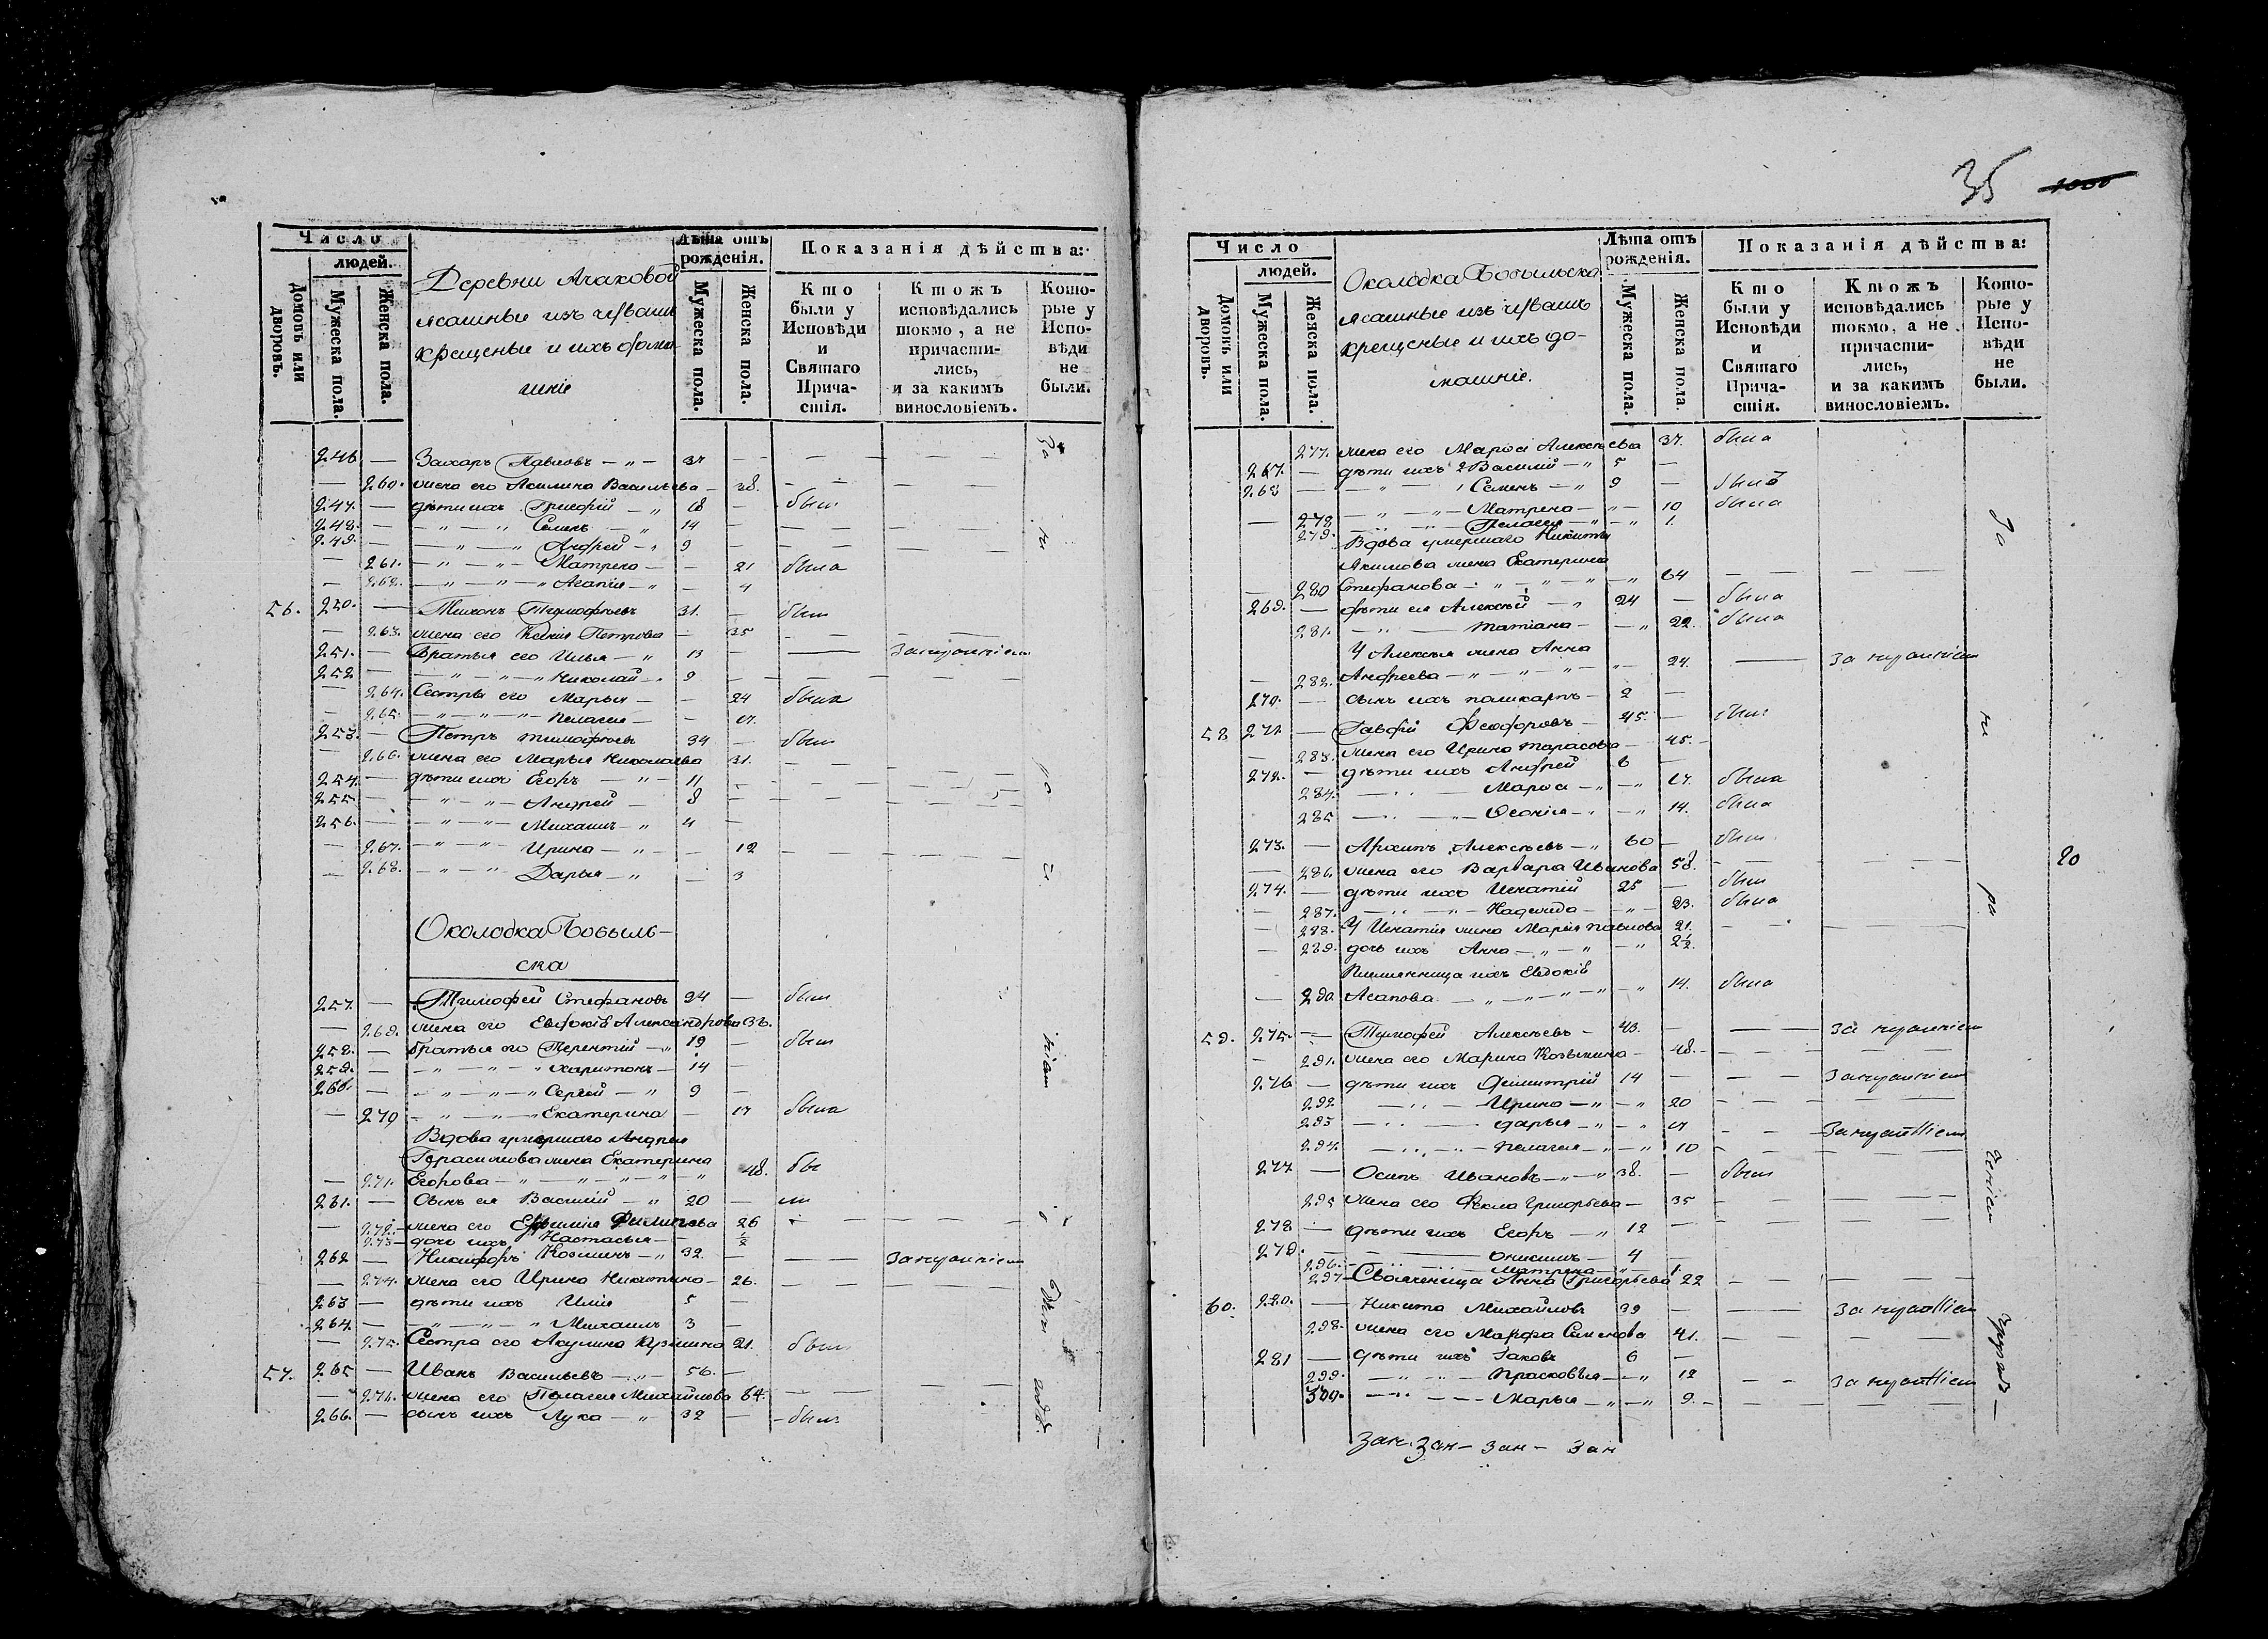 Число
людей.
Домовъ или дворовъ.
Мужеска пола.
Женска пола.
Деревни Ачаковой
ясашные изъ чувашъ
крещеные и ихъ дома-
шніе
Лѣта отъ рожденія.
Мужеска пола.
Женска пола.
Показанія дѣйства:
Кто были у Исповѣди и Святаго Причастія.
Ктожъ исповѣдались токмо, а не причастились, и за какимъ винословіемъ.
Которые у Исповѣди не были.
246 — Захаръ Павловъ — 37 —
— 260. жена его Акилина Васильева — 38.
247. — дѣти ихъ Григорій — 18 — былъ
248. — Семенъ — 14 —
249. — Андрей — 9 —
— 261. Матрена — 21 была
— 262. Агапія — 4
56. 250. — Тихонъ Тимофѣевъ 31. — былъ
— 263. жена его Ксенія Петрова — 35
251. — Братья его Илья — 13 —
252 — Николай — 9 —
— 264. Сестры его Марья — 24 была
— 265. Пелагея — 17.
253. — Петръ тимофѣевъ 34 — былъ
— 266. жена его Марья Николаева 31.
254. — дѣти ихъ Егоръ — 11 —
255 — Андрей — 8 —
256. — Михаилъ — 4 —
— 267. Ирина — 12
— 268. Дарья — 3
Околодка Бобыль-
ска
257. — Тимофей Стефановъ 24 — былъ
— 269. жена его Евдокія Александрова 36.
258. — братья его Терентій — 19 — былъ
259. — Харитонъ — 14 —
260. — Сергей — 9 —
— 270 Екатерина — 17 была
Вдова умершаго Андрея
Герасимова жена Екатерина
— 271. Егорова — 48. бы
261. — Сынъ ея Василій — 20 — ли
— 272. жена его Ефимія Филипова 26
273 — дочь ихъ Настасья — ½
262 — Никифоръ Козминъ — 32. —
— 274. жена его Ирина Никитина — 26.
263 — дѣти ихъ Илія 5 —
264. — Михаилъ 3 —
— 275. Сестра его Акулина Кузмина 21. была
57. 265 — Иванъ Васильевъ — 56. —
— 276. жена его Пелагея Михайлова 64.
266. — сынъ ихъ Лука — 32 — былъ
35
Число
людей.
Домовъ или дворовъ.
Мужеска пола.
Женска пола.
Околодка Бобыльска
ясашные изъ чувашъ
крещеные и ихъ до-
машніе.
Лѣта отъ рожденія.
Мужеска пола.
Женска пола.
Показанія дѣйства:
Кто были у Исповѣди и Святаго Причастія.
Ктожъ исповѣдались токмо, а не причастились, и за какимъ винословіемъ.
Которые у Исповѣди не были.
277. жена его Марѳа Алексѣева 37. была
267. — дѣти ихъ 2 Василій — 5 —
268 — 1 Семенъ — 9 — былъ
— 278 Матрена — 10 была
279. Пелагея — 1.
Вдова умершаго Никиты
Якимова жена Екатерина
— 280 Стефанова — 64
269. — дѣти ея Алексѣй — 24 —
281. татіана — 22. была
У Алексѣя жена Анна
— 282. Андреева — 24.
270. — сынъ ихъ поликарпъ — 2 —
58 271 — Феодоровъ — 45. — былъ
— 283. жена его Ирина тарасова — 45.
272. — дѣти ихъ Андрей 6 —
284. Марѳа — 17. была
285 — 14. была
273. — Архипъ Алексѣевъ — 60 — былъ
— 286. жена его Варвара Иванова 58.
274. — дѣти ихъ Игнатій 25 — былъ
— 287. Надежда — 23. была
— 288. У Игнатія жена Марія павлова 21.
— 289. дочь ихъ Анна — 2½.
Племянница ихъ Евдокія
— 290. Агапова — 14. была
59. 275. — Тимофей Алексѣевъ — 43. —
— 291. жена его Марина Козьмина — 48.
276 — дѣти ихъ Димитрій 14 —
292. Ирина — 20
293 дарья — 17
294. пелагея — 10
277 — Осипъ Ивановъ — 38. — былъ
295 жена его Ѳекла Григорьева — 35
278 — дѣти ихъ Егоръ — 12 —
279. — 4 —
296. Матрена — 1.
297 Свояченица Анна Григорьева 22
60. 280. — Никита Михайловъ 39 —
298. жена его Марфа Семенова 41.
281 — дѣти ихъ Іаковъ 6 —
299. Прасковья — 12
300. Марья — 9.
зан. зан — зан — зан
20